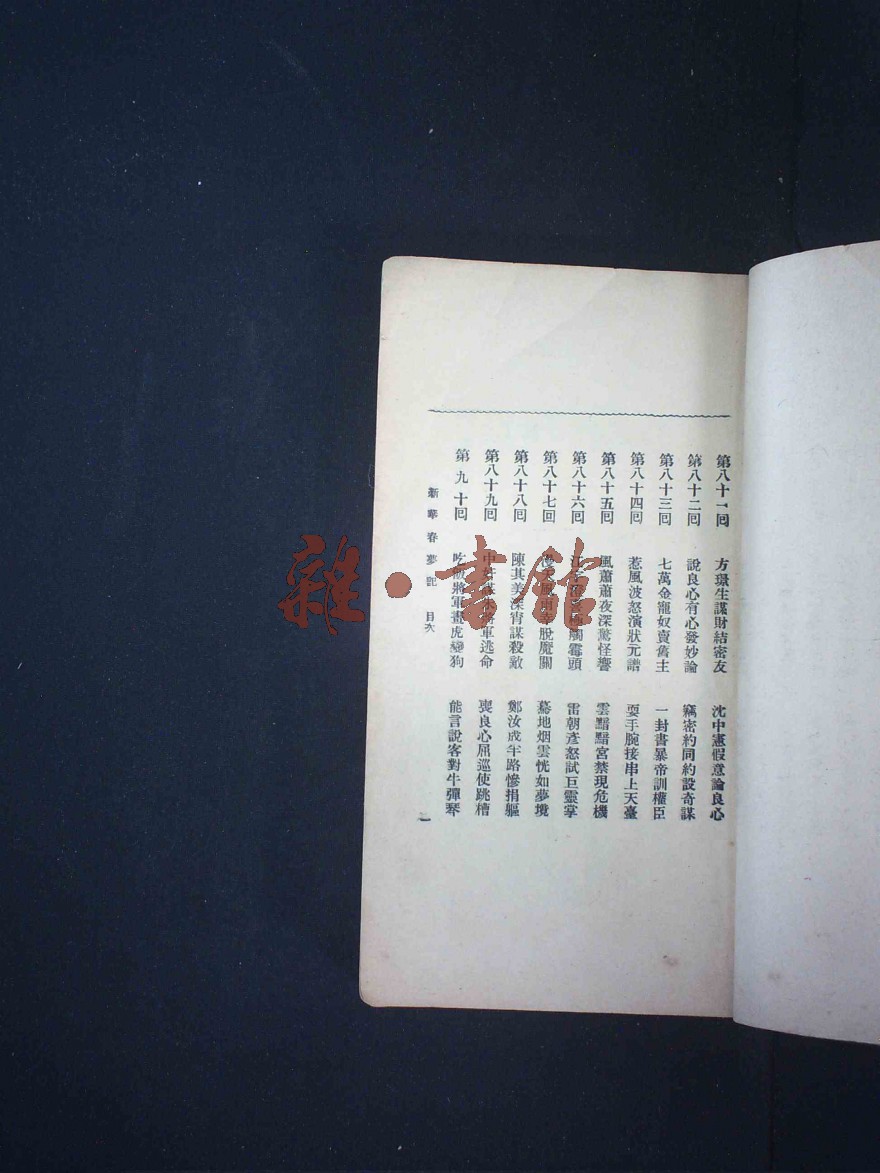 第八十一回 方璟生謀財結密友 沈中憲假意論良心
第八十二回 說良心有心發妙論 竊密約同約設奇謀
第八十三回 七萬金寵奴賣舊主 一封書暴帝訓權臣
第八十四回 惹風波怒演狀元譜 耍手腕接串上天臺
第八十五回 風蕭蕭夜深驚怪響 雲黯黯宮禁現危機
第八十六回 觸霉頭 雷朝彥怒試巨靈掌
第八十七回 脫魔關 驀地烟雲恍如夢境
第八十八回 陳其美深宵謀殺敵 鄭汝成半路慘捐軀
第八十九回 軍逃命 喪良心屈巡使跳槽
第九十回 將軍畫虎變狗 能言說客對牛彈琴
新華春夢記 目次 一
雜·書館